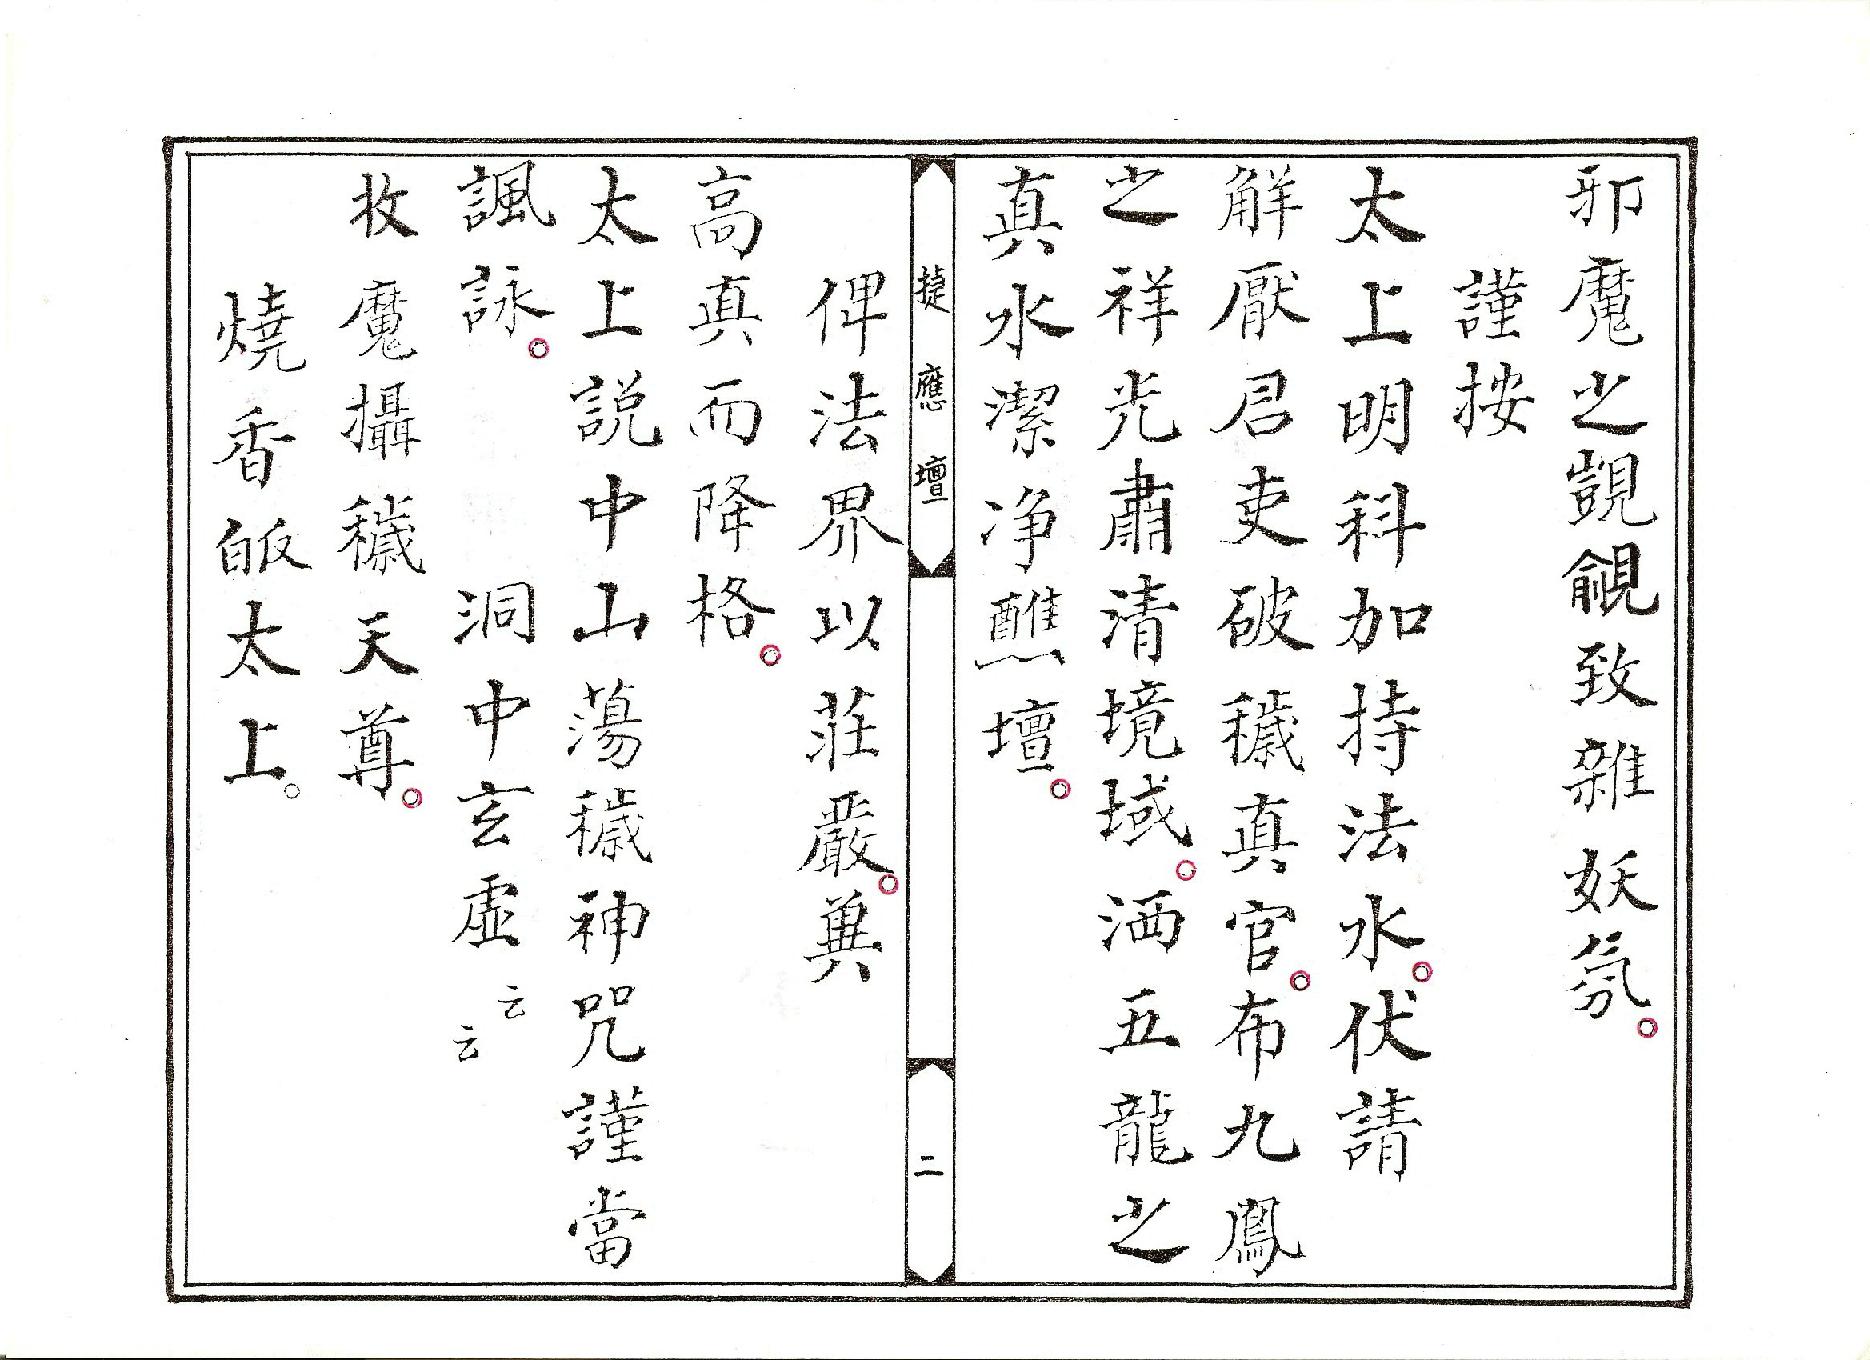 邪魔之覬覦致雜妖氛。
謹按
太上明科加持法水。伏請
解厭君吏破穢真官。布九鳳
之祥光肅清境域。洒五龍之
真水潔净醮壇。
捷應壇
二
俾法界以莊嚴。冀
高真而降格。
太上説中山蕩穢神咒謹當
諷詠。 洞中玄虛云云
收魔攝穢天尊。
燒香皈太上。